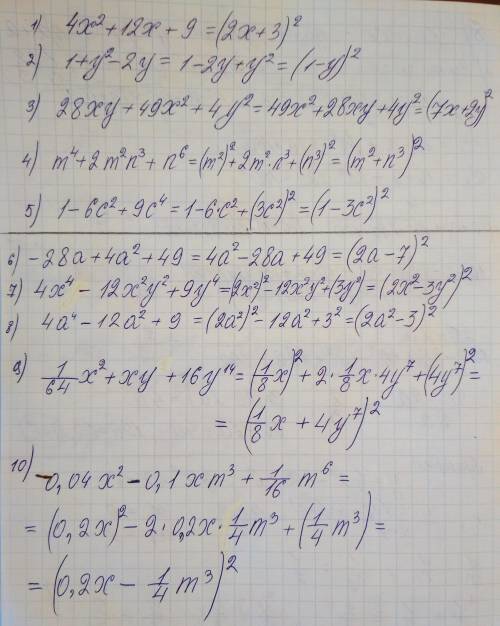 1) 4x²+12x+9=(2x+3)²
2) 1+y²-2y=1-2y+y²=(1-y)²
3) 28xy+49x²+4y²=49x²+28xy+4y²=(7x+2y)²
4) m⁴+2m²n³+n⁶=(m²)²+2m²·n³+(n³)²=(m²+n³)²
5) 1-6c²+9c⁴=1-6·c²+(3c²)²=(1-3c²)²
6) -28a+4a²+49=4a²-28a+49=(2a-7)²
7) 4x⁴-12x²y²+9y⁴=(2x²)²-12x²y²+(3y²)=(2x²-3y²)²
8) 4a⁴-12a²+9=(2a²)²-12a²+3²=(2a²-3)²
9) 1/64 x²+xy+16y¹⁴=(1/8 x)²+2·1/8 x·4y⁷+(4y⁷)²=
=(1/8 x+4y⁷)²
10) -0,04x²-0,1xm³+1/16 m⁶=
=(0,2x)²-2·0,2x·1/4 m³+(1/4 m³)=
=(0,2x-1/4 m³)²